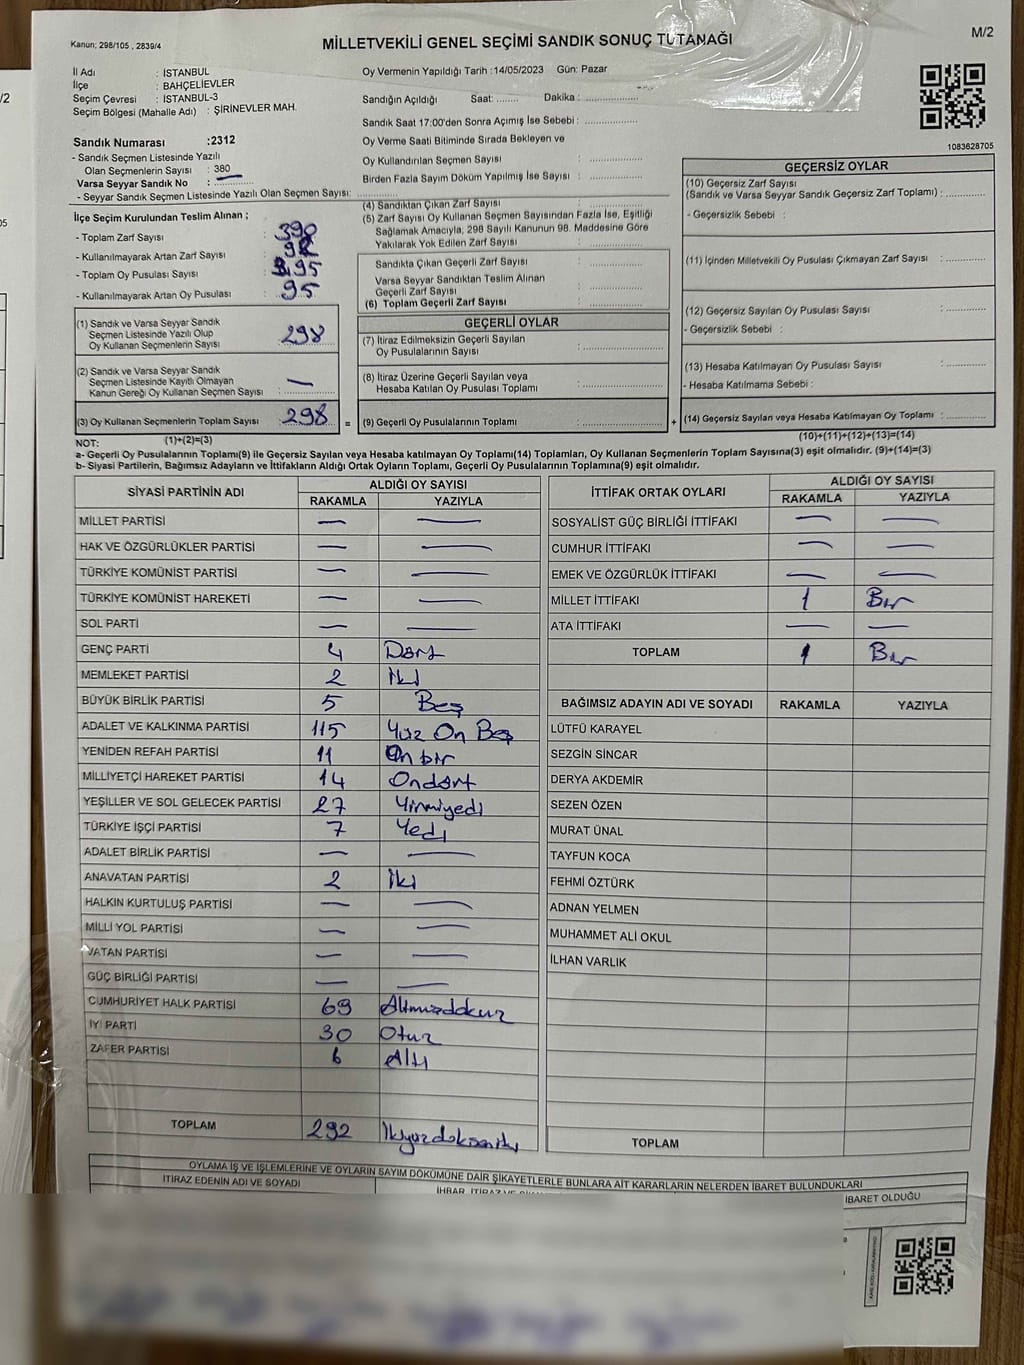 Kanun; 298/105 , 2839/4
MİLLETVEKİLİ GENEL SEÇİMİ SANDIK SONUÇ TUTANAĞI
M/2
/2
İl Adı : İSTANBUL
İlçe : BAHÇELİEVLER
Seçim Çevresi : İSTANBUL-3
Seçim Bölgesi (Mahalle Adı) : ŞİRİNEVLER MAH.
Sandık Numarası :2312
- Sandık Seçmen Listesinde Yazılı
Olan Seçmenlerin Sayısı : 380
Varsa Seyyar Sandık No :
- Seyyar Sandık Seçmen Listesinde Yazılı Olan Seçmen Sayısı:
İlçe Seçim Kurulundan Teslim Alınan ;
- Toplam Zarf Sayısı : 390
- Kullanılmayarak Artan Zarf Sayısı :
- Toplam Oy Pusulası Sayısı :
- Kullanılmayarak Artan Oy Pusulası : 95
(1) Sandık ve Varsa Seyyar Sandık
Seçmen Listesinde Yazılı Olup
Oy Kullanan Seçmenlerin Sayısı : 298
(2) Sandık ve Varsa Seyyar Sandık
Seçmen Listesinde Kayıtlı Olmayan
Kanun Gereği Oy Kullanan Seçmen Sayısı : —
(3) Oy Kullanan Seçmenlerin Toplam Sayısı : 298
(1)+(2)=(3)
Oy Vermenin Yapıldığı Tarih :14/05/2023 Gün: Pazar
Sandığın Açıldığı Saat: ........ Dakika :
Sandık Saat 17:00'den Sonra Açımış İse Sebebi :
Oy Verme Saati Bitiminde Sırada Bekleyen ve
Oy Kullandırılan Seçmen Sayısı :
Birden Fazla Sayım Döküm Yapılmış İse Sayısı :
(4) Sandıktan Çıkan Zarf Sayısı :
(5) Zarf Sayısı Oy Kullanan Seçmen Sayısından Fazla İse, Eşitliği
Sağlamak Amacıyla, 298 Sayılı Kanunun 98. Maddesine Göre
Yakılarak Yok Edilen Zarf Sayısı :
Sandıkta Çıkan Geçerli Zarf Sayısı :
Varsa Seyyar Sandıktan Teslim Alınan
Geçerli Zarf Sayısı :
(6) Toplam Geçerli Zarf Sayısı :
GEÇERLİ OYLAR
(7) İtiraz Edilmeksizin Geçerli Sayılan
Oy Pusulalarının Sayısı :
(8) İtiraz Üzerine Geçerli Sayılan veya
Hesaba Katılan Oy Pusulası Toplamı :
= (9) Geçerli Oy Pusulalarının Toplamı :
1083628705
GEÇERSİZ OYLAR
(10) Geçersiz Zarf Sayısı
(Sandık ve Varsa Seyyar Sandık Geçersiz Zarf Toplamı) :
- Geçersizlik Sebebi :
(11) İçinden Milletvekili Oy Pusulası Çıkmayan Zarf Sayısı :
(12) Geçersiz Sayılan Oy Pusulası Sayısı :
- Geçersizlik Sebebi :
(13) Hesaba Katılmayan Oy Pusulası Sayısı :
- Hesaba Katılmama Sebebi :
+ (14) Geçersiz Sayılan veya Hesaba Katılmayan Oy Toplamı :
(10)+(11)+(12)+(13)=(14)
NOT:
a- Geçerli Oy Pusulalarının Toplamı(9) ile Geçersiz Sayılan veya Hesaba katılmayan Oy Toplamı(14) Toplamları, Oy Kullanan Seçmenlerin Toplam Sayısına(3) eşit olmalıdır. (9)+(14)=(3)
b- Siyasi Partilerin, Bağımsız Adayların ve İttifakların Aldığı Ortak Oyların Toplamı, Geçerli Oy Pusulalarının Toplamına(9) eşit olmalıdır.
SİYASİ PARTİNİN ADI ALDIĞI OY SAYISI
RAKAMLA YAZIYLA
MİLLET PARTİSİ — —
HAK VE ÖZGÜRLÜKLER PARTİSİ — —
TÜRKİYE KOMÜNİST PARTİSİ — —
TÜRKİYE KOMÜNİST HAREKETİ — —
SOL PARTİ — —
GENÇ PARTİ 4 Dört
MEMLEKET PARTİSİ 2 İki
BÜYÜK BİRLİK PARTİSİ 5 Beş
ADALET VE KALKINMA PARTİSİ 115 Yüz On Beş
YENİDEN REFAH PARTİSİ 11 Onbir
MİLLİYETÇİ HAREKET PARTİSİ 14 Ondört
YEŞİLLER VE SOL GELECEK PARTİSİ 27 Yirmiyedi
TÜRKİYE İŞÇİ PARTİSİ 7 Yedi
ADALET BİRLİK PARTİSİ — —
ANAVATAN PARTİSİ 2 İki
HALKIN KURTULUŞ PARTİSİ — —
MİLLİ YOL PARTİSİ — —
VATAN PARTİSİ — —
GÜÇ BİRLİĞİ PARTİSİ — —
CUMHURİYET HALK PARTİSİ 69 Altmışdokuz
İYİ PARTİ 30 Otuz
ZAFER PARTİSİ 6 Altı
TOPLAM 292 İkiyüzdoksaniki
İTTİFAK ORTAK OYLARI ALDIĞI OY SAYISI
RAKAMLA YAZIYLA
SOSYALİST GÜÇ BİRLİĞİ İTTİFAKI — —
CUMHUR İTTİFAKI — —
EMEK VE ÖZGÜRLÜK İTTİFAKI — —
MİLLET İTTİFAKI 1 Bir
ATA İTTİFAKI — —
TOPLAM 1 Bir
BAĞIMSIZ ADAYIN ADI VE SOYADI RAKAMLA YAZIYLA
LÜTFÜ KARAYEL
SEZGİN SİNCAR
DERYA AKDEMİR
SEZEN ÖZEN
MURAT ÜNAL
TAYFUN KOCA
FEHMİ ÖZTÜRK
ADNAN YELMEN
MUHAMMET ALİ OKUL
İLHAN VARLIK
TOPLAM
OYLAMA İŞ VE İŞLEMLERİNE VE OYLARIN SAYIM DÖKÜMÜNE DAİR ŞİKAYETLERLE BUNLARA AİT KARARLARIN NELERDEN İBARET BULUNDUKLARI
İTİRAZ EDENİN ADI VE SOYADI
İBARET OLDUĞU